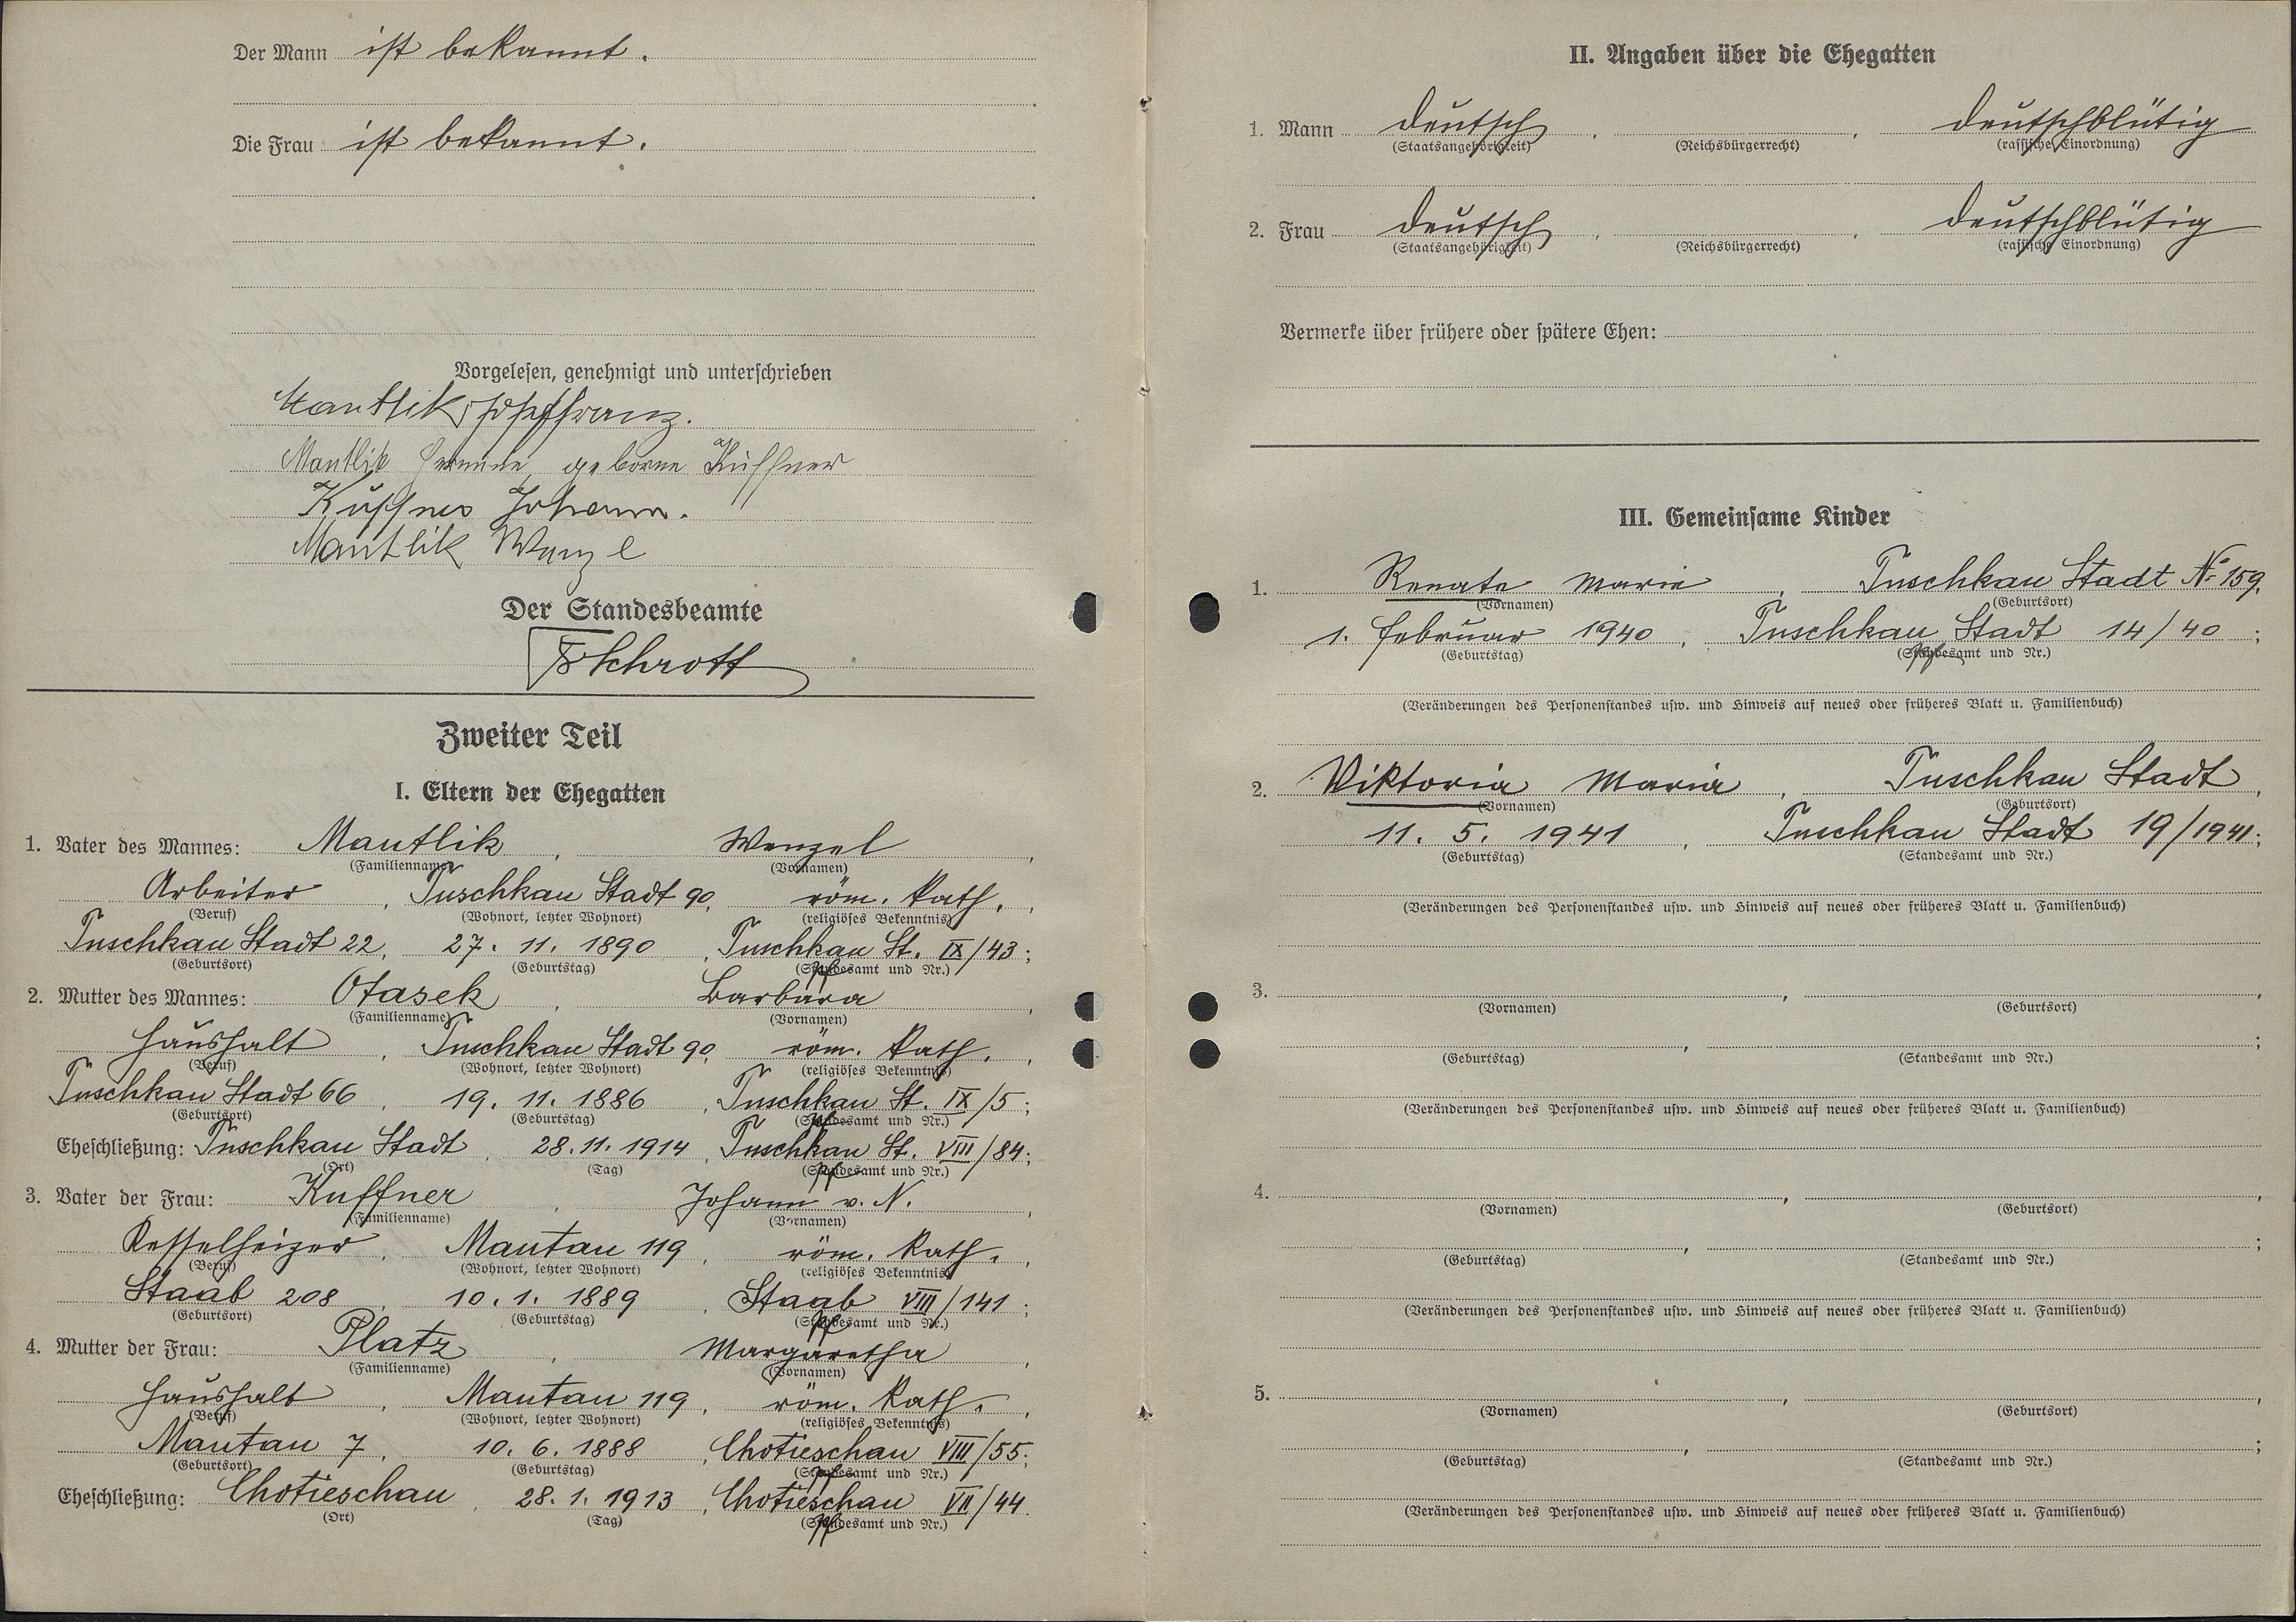 Der Mann ist bekannt.
Die Frau ist bekannt.
Vorgelesen, genehmigt und unterschrieben
Mantlik Josef Franz.
Mantlik geborene Kuffner
Kuffner Johann.
Mantlik Wenzl
Der Standesbeamte
Schrott
Zweiter Teil
I. Eltern der Ehegatten
1. Vater des Mannes: Mantlik, Wenzel,
(Familienname) (Vornamen)
Arbeiter, Tuschkau Stadt 90, röm. kath.,
(Beruf) (Wohnort, letzter Wohnort) (religiöses Bekenntnis)
Tuschkau Stadt 22, 27. 11. 1890, Tuschkau St. IX/43;
(Geburtsort) (Geburtstag) (Standesamt und Nr.)
2. Mutter des Mannes: Otasek, Barbara,
(Familienname) (Vornamen)
Haushalt, Tuschkau Stadt 90, röm. kath.,
(Beruf) (Wohnort, letzter Wohnort) (religiöses Bekenntnis)
Tuschkau Stadt 66, 19. 11. 1886, Tuschkau St. IX/5;
(Geburtsort) (Geburtstag) (Standesamt und Nr.)
Eheschließung: Tuschkau Stadt, 28. 11. 1914, Tuschkau St. VIII/84;
(Ort) (Tag) (Standesamt und Nr.)
3. Vater der Frau: Kuffner, Johann v. N.,
(Familienname) (Vornamen)
Kesselheizer, Mantau 119, röm. kath.,
(Beruf) (Wohnort, letzter Wohnort) (religiöses Bekenntnis)
Staab 208, 10. 1. 1889, Staab VIII/141;
(Geburtsort) (Geburtstag) (Standesamt und Nr.)
4. Mutter der Frau: Platz, Margaretha,
(Familienname) (Vornamen)
Haushalt, Mantau 119, röm. kath.,
(Beruf) (Wohnort, letzter Wohnort) (religiöses Bekenntnis)
Mantau 7, 10. 6. 1888, Chotieschau VIII/55;
(Geburtsort) (Geburtstag) (Standesamt und Nr.)
Eheschließung: Chotieschau, 28. 1. 1913, Chotieschau VII/44.
(Ort) (Tag) (Standesamt und Nr.)
II. Angaben über die Ehegatten
1. Mann deutsch, , deutschblütig
(Staatsangehörigkeit) (Reichsbürgerrecht) (rassische Einordnung)
2. Frau deutsch, , deutschblütig
(Staatsangehörigkeit) (Reichsbürgerrecht) (rassische Einordnung)
Vermerke über frühere oder spätere Ehen:
III. Gemeinsame Kinder
1. Renate Marie, Tuschkau Stadt No 159,
(Vornamen) (Geburtsort)
1. Februar 1940, Tuschkau Stadt 14/40;
(Geburtstag) (Standesamt und Nr.)
(Veränderungen des Personenstandes usw. und Hinweis auf neues oder früheres Blatt u. Familienbuch)
2. Viktoria Maria, Tuschkau Stadt,
(Vornamen) (Geburtsort)
11. 5. 1941, Tuschkau Stadt 19/1941;
(Geburtstag) (Standesamt und Nr.)
(Veränderungen des Personenstandes usw. und Hinweis auf neues oder früheres Blatt u. Familienbuch)
3. , ,
(Vornamen) (Geburtsort)
, ;
(Geburtstag) (Standesamt und Nr.)
(Veränderungen des Personenstandes usw. und Hinweis auf neues oder früheres Blatt u. Familienbuch)
4. , ,
(Vornamen) (Geburtsort)
, ;
(Geburtstag) (Standesamt und Nr.)
(Veränderungen des Personenstandes usw. und Hinweis auf neues oder früheres Blatt u. Familienbuch)
5. , ,
(Vornamen) (Geburtsort)
, ;
(Geburtstag) (Standesamt und Nr.)
(Veränderungen des Personenstandes usw. und Hinweis auf neues oder früheres Blatt u. Familienbuch)